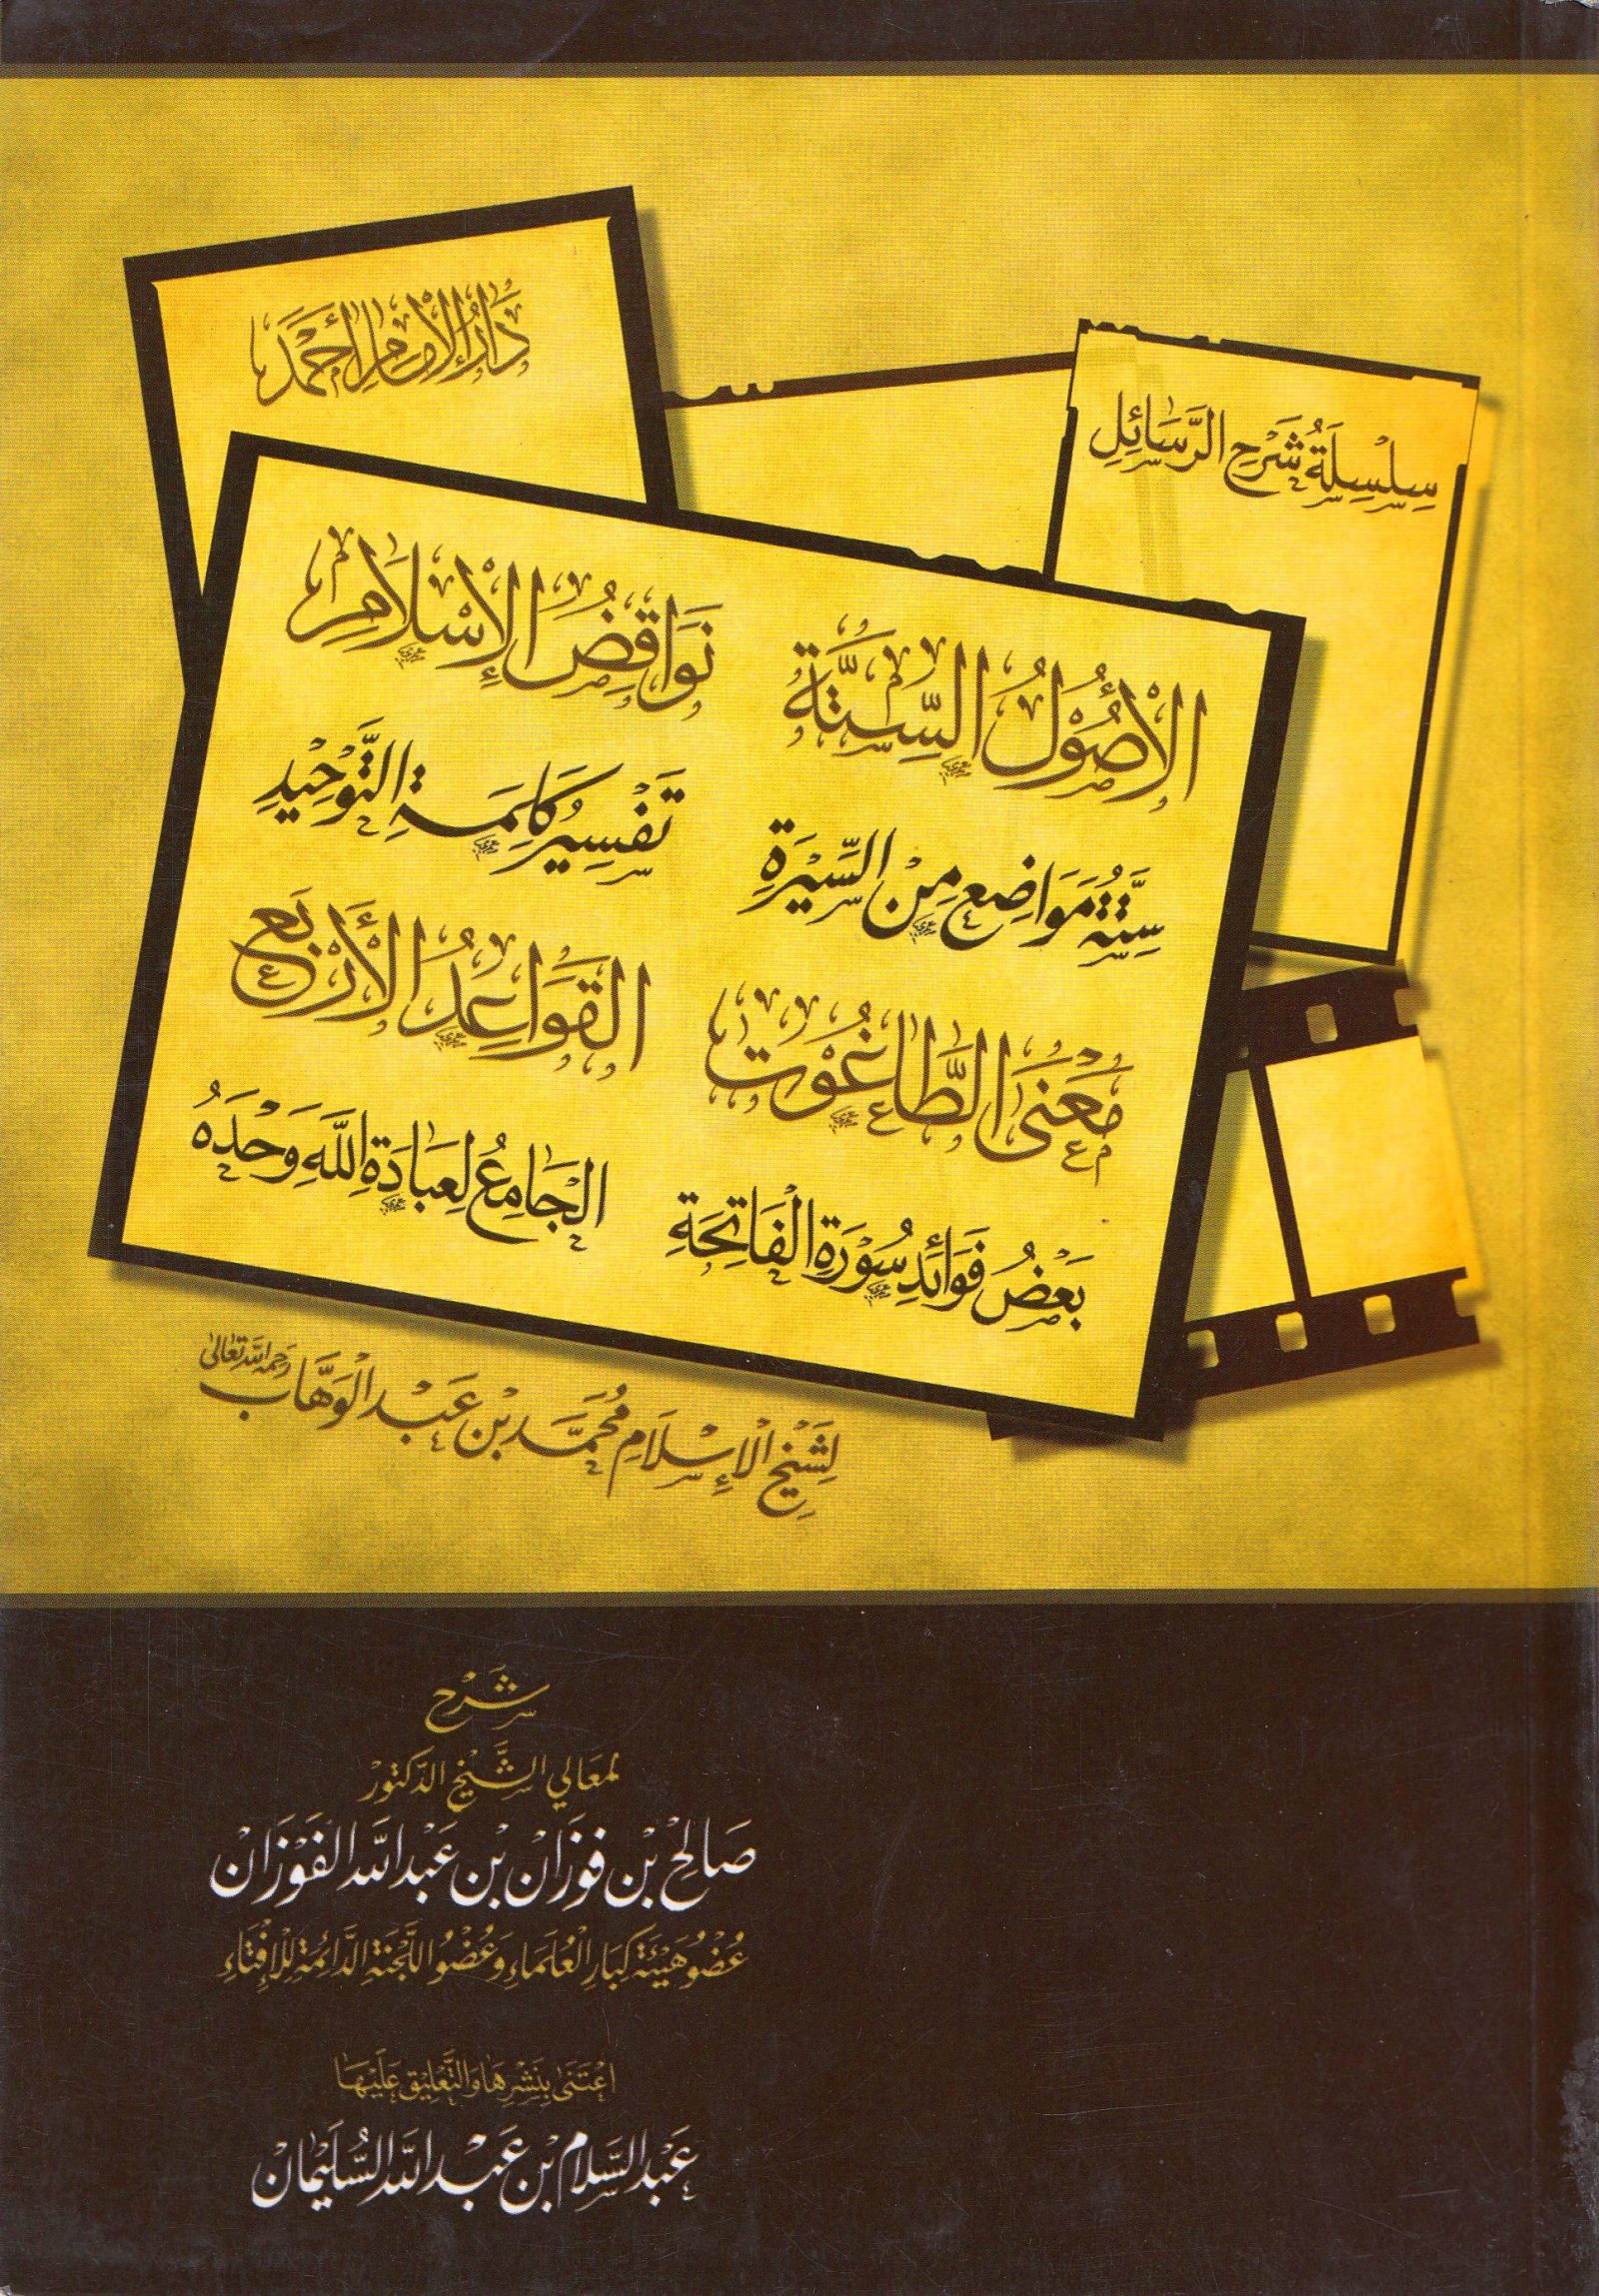 دَارُ الإِمَامِ أَحْمَد
سِلْسِلَةُ شَرْحِ الرَّسَائِلِ
الأُصُوْلُ السِّتَّةُ
نَوَاقِضُ الإِسْلَامِ
سِتَّةُ مَوَاضِعَ مِنَ السِّيْرَةِ
تَفْسِيْرُ كَلِمَةِ التَّوْحِيْدِ
مَعْنَى الطَّاغُوْتِ
القَوَاعِدُ الأَرْبَع
بَعْضُ فَوَائِدِ سُوْرَةِ الْفَاتِحَةِ
الجَامِعُ لِعِبَادَةِ اللَّهِ وَحْدَهُ
لِشَيْخِ الْإِسْلَامِ مُحَمَّد بْن عَبْد الْوَهَّاب رَحِمَهُ اللَّهُ تَعَالَى
شَرْح
لمَعَالِي الشَّيْخِ الدّكتُورْ
صَالِحْ بْن فَوْزَانْ بْن عَبْد اللَّه الفَوْزَانْ
عُضْوُ هَيْئَةِ كِبَارِ الْعُلَمَاءِ وَعُضْوُ اللَّجْنَةِ الدَّائِمَةِ لِلْإِفْتَاءِ
اعْتَنَى بِنَشْرِهَا وَالتَّعْلِيقِ عَلَيْهَا
عَبْد السَّلَام بْن عَبْد اللَّه السُّلَيْمَانْ